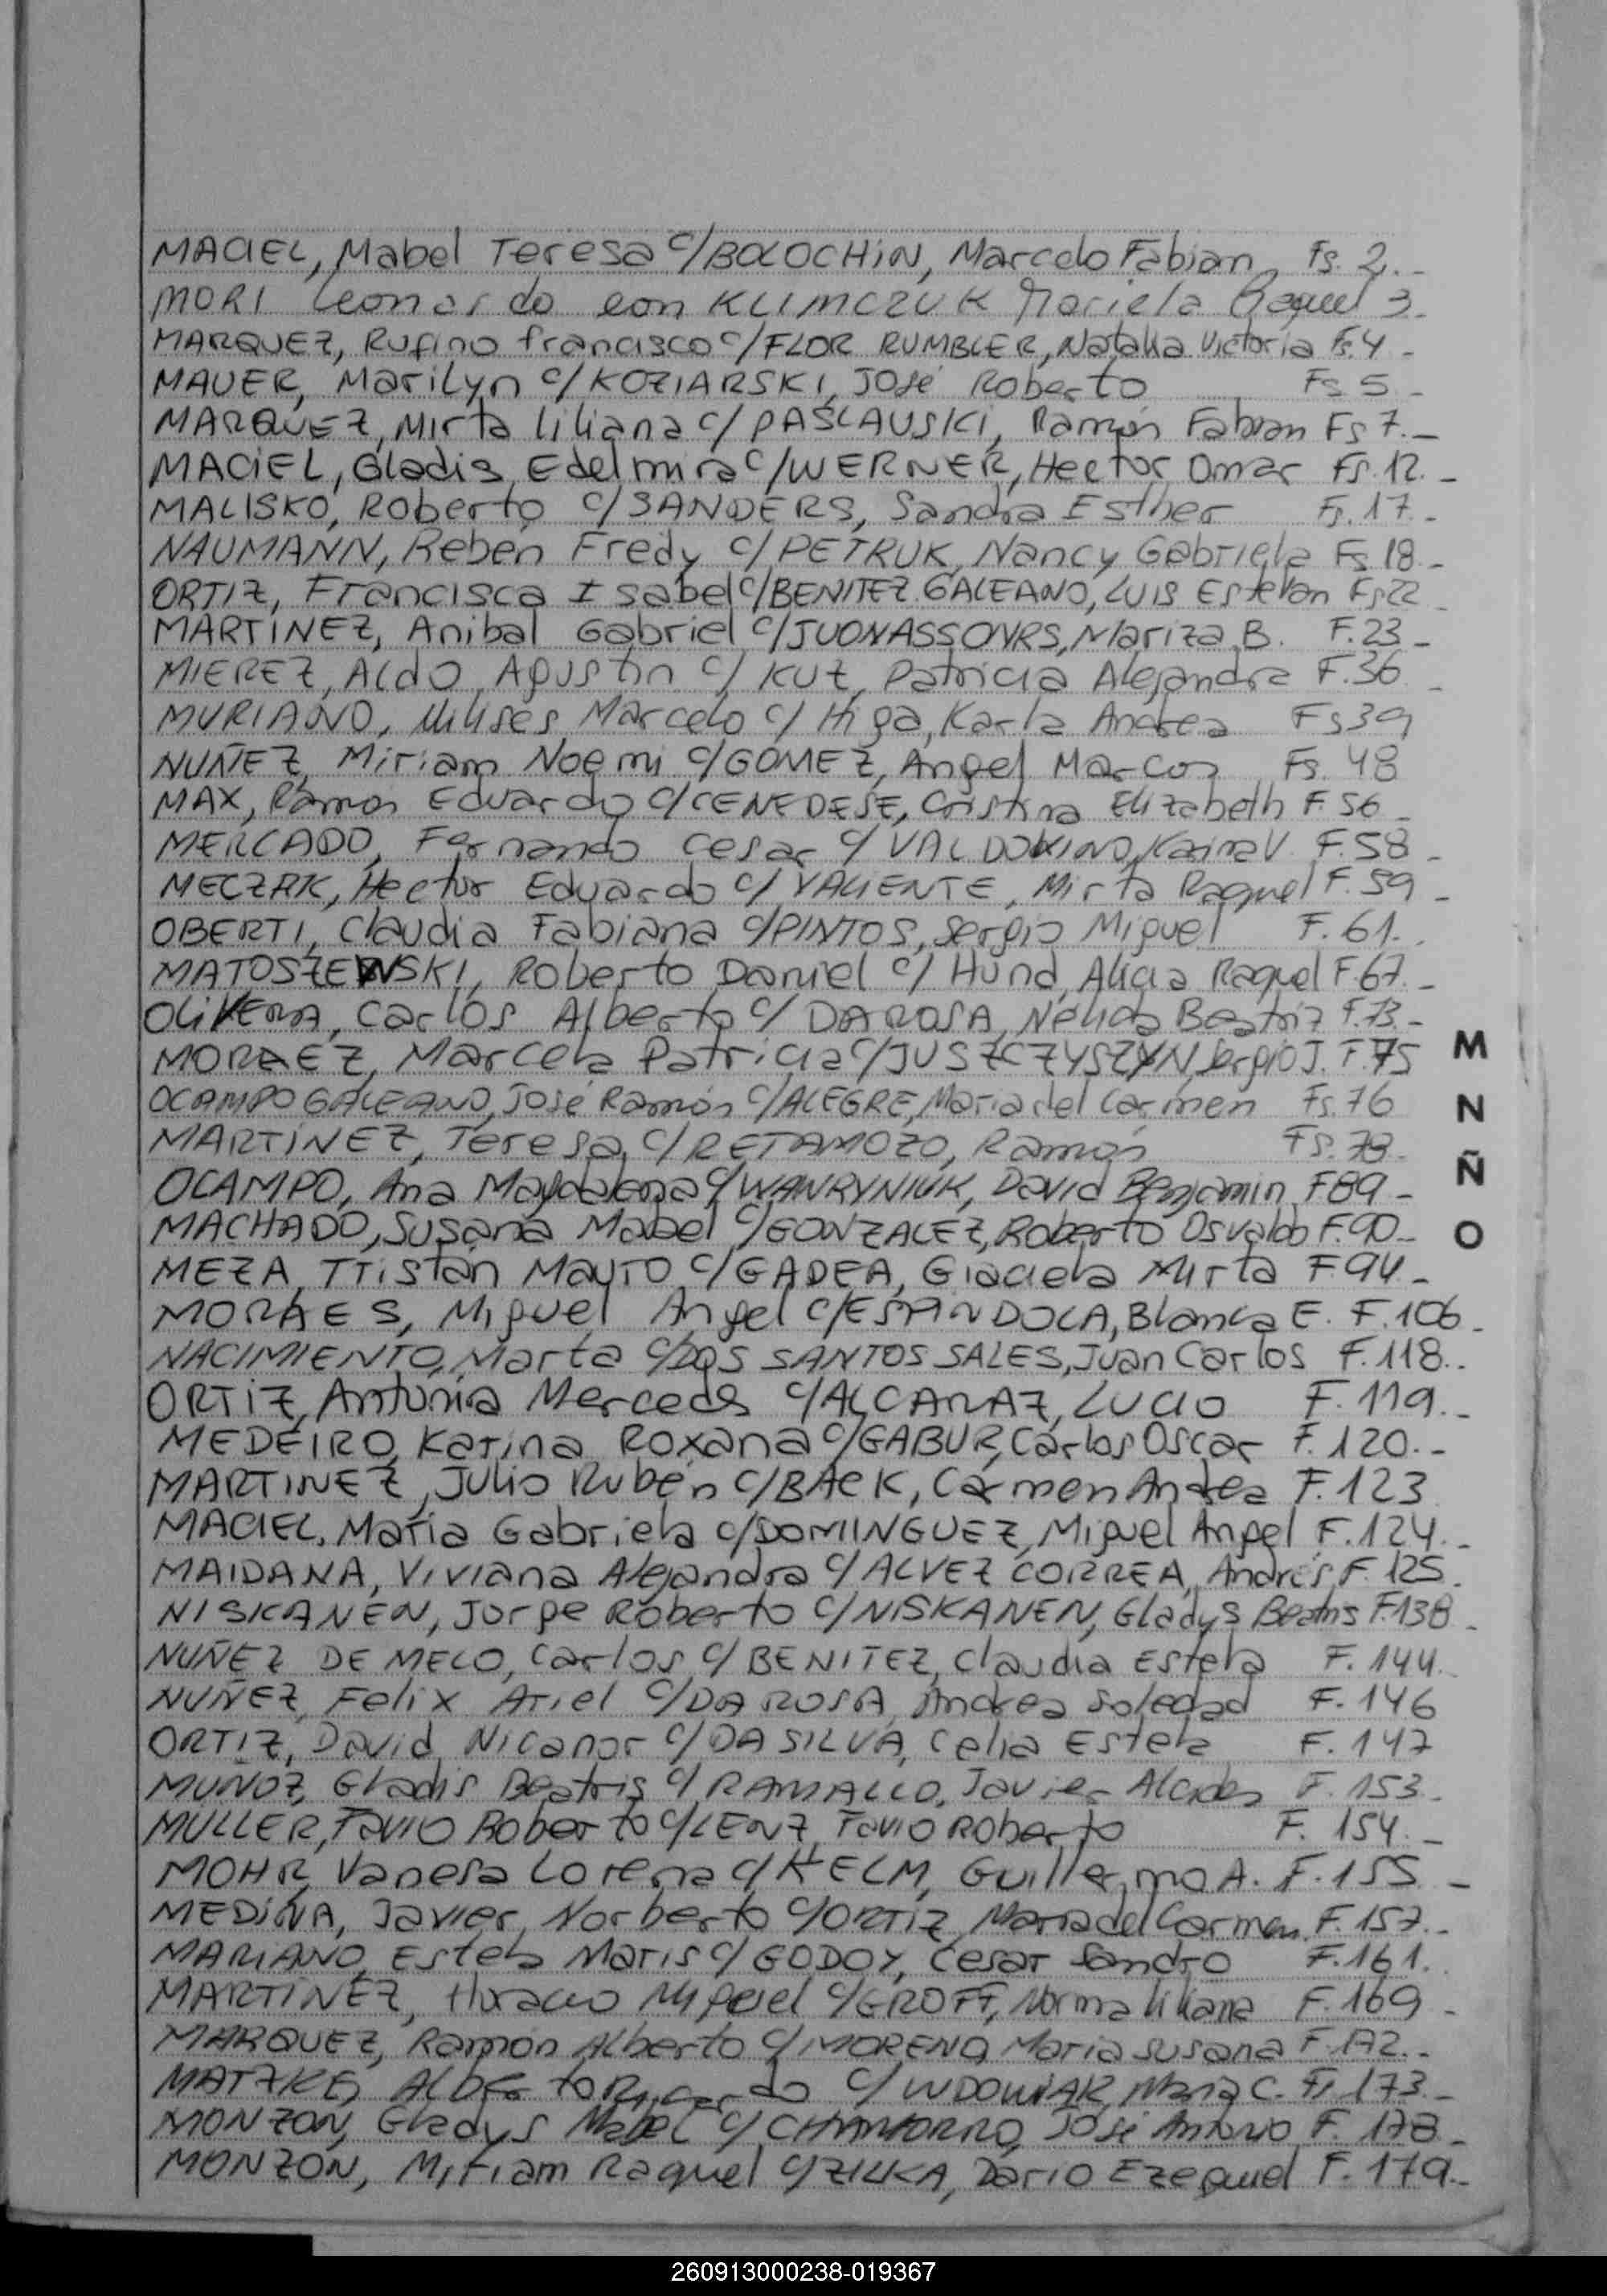 MACIEL, Mabel Teresa c/BOLOCHIN, Marcelo Fabian, Fs. 2.-
MORI Leonardo con KLIMCZUK Mariela Raquel 3.
MARQUEZ, Rufino francisco c/FLOR RUMBLER, Natalia Victoria Fs.4 -
MAUER, Marilyn c/KOZIARSKI, José Roberto Fs 5 -
MARQUEZ, Mirta Liliana c/ PASLAUSKI, Ramón Fabian Fs 7.-
MACIEL, Gladis Edelmira c/WERNER, Hector Omar Fs.12.-
MALISKO, Roberto c/SANDERS, Sandra Esther Fs.17.-
NAUMANN, Reben Fredy c/PETRUK, Nancy Gabriela Fs 18.-
ORTIZ, Francisca Isabel c/BENITEZ GALEANO, LUIS Estevan Fs22
MARTINEZ, Anibal Gabriel c/JUONASSONRS, Mariza B. F.23 -
MIEREZ, Aldo Agustin c/ KUZ, Patricia Alejandra F.36 -
MURIANO, Ulises Marcelo c/ Higa, Karla Andrea Fs39
NUÑEZ, Miriam Noemi c/GOMEZ, Angel Marcos Fs. 48
MAX, Ramon Eduardo c/CENEDESE, Cristina Elizabeth F.56 -
MERCADO, Fernando Cesar c/ VALDOVINO, Karina V. F.58 -
MECZAK, Hector Eduardo c/ VALIENTE, Mirta Raquel F.59 -
OBERTI, Claudia Fabiana c/PINTOS, Sergio Miguel F.61.
MATOSZEWSKI, Roberto Daniel c/ Hund, Alicia Raquel F.67.-
OLIVERA, Carlos Alberto c/ DA ROSA, Nélida Beatriz F.73.-
MORAEZ, Marcela Patricia c/JUSZCZYSZYN, Sergio J. F.75
OCAMPO GALEANO, José Ramón c/ALEGRE, Maria del Carmen Fs.76
MARTINEZ, Teresa c/RETAMOZO, Ramón Fs.78.
OCAMPO, Ana Magdalena c/WANRYNIUK, David Benjamin F89 -
MACHADO, Susana Mabel c/GONZALEZ, Roberto Osvaldo F.90.-
MEZA, Tristan Mauro c/GADEA, Graciela Mirta F.94.-
MORAES, Miguel Angel c/ESPINDOLA, Blanca E. F.106 -
NACIMIENTO, Marta c/DOS SANTOS SALES, Juan Carlos F.118..
ORTIZ, Antonia Mercedes c/ALCARAZ, Lucio F.119.-
MEDEIRO, Karina Roxana c/GABUR, Carlos Oscar F.120.-
MARTINEZ, Julio Rubén c/BAEK, Carmen Andrea F.123
MACIEL, Maria Gabriela c/DOMINGUEZ, Miguel Angel F.124.-
MAIDANA, Viviana Alejandra c/ ALVEZ CORREA, Andrés F.125.
NISKANEN, Jorge Roberto c/NISKANEN, Gladys Beatris F.138 -
NUÑEZ DE MELO, Carlos c/ BENITEZ, Claudia Estela F.144.
NUÑEZ, Felix Ariel c/DA ROSA, Andrea Soledad F.146
ORTIZ, David Nicanor c/DA SILVA, Celia Estela F.147
MUÑOZ, Gladis Beatris c/ RAMALLO, Javier Alcides F.153.
MULLER, Favio Roberto c/LENZ, Favio Roberto F. 154.-
MOHR, Vanesa Lorena c/KELM, Guillermo A. F.155 -
MEDINA, Javier Norberto c/ORTIZ, Maria del Carmen F.157.-
MARIANO, Estela Maris c/ GODOY, Cesar Sandro F.161.
MARTINEZ, Horacio Miguel c/GROFF, Norma Liliana F.169 -
MARQUEZ, Ramón Alberto c/MORENO, Maria Susana F.172.-
MATZKE, Alberto Ricardo c/ WDOWIAK, Maria C. Fs.173.-
MONZON, Gladys Mabel c/ CHAMORRO, José Antonio F. 178 -
MONZON, Miriam Raquel c/ZILKA, Dario Ezequiel F.179.-
M
N
Ñ
O
260913000238-019367